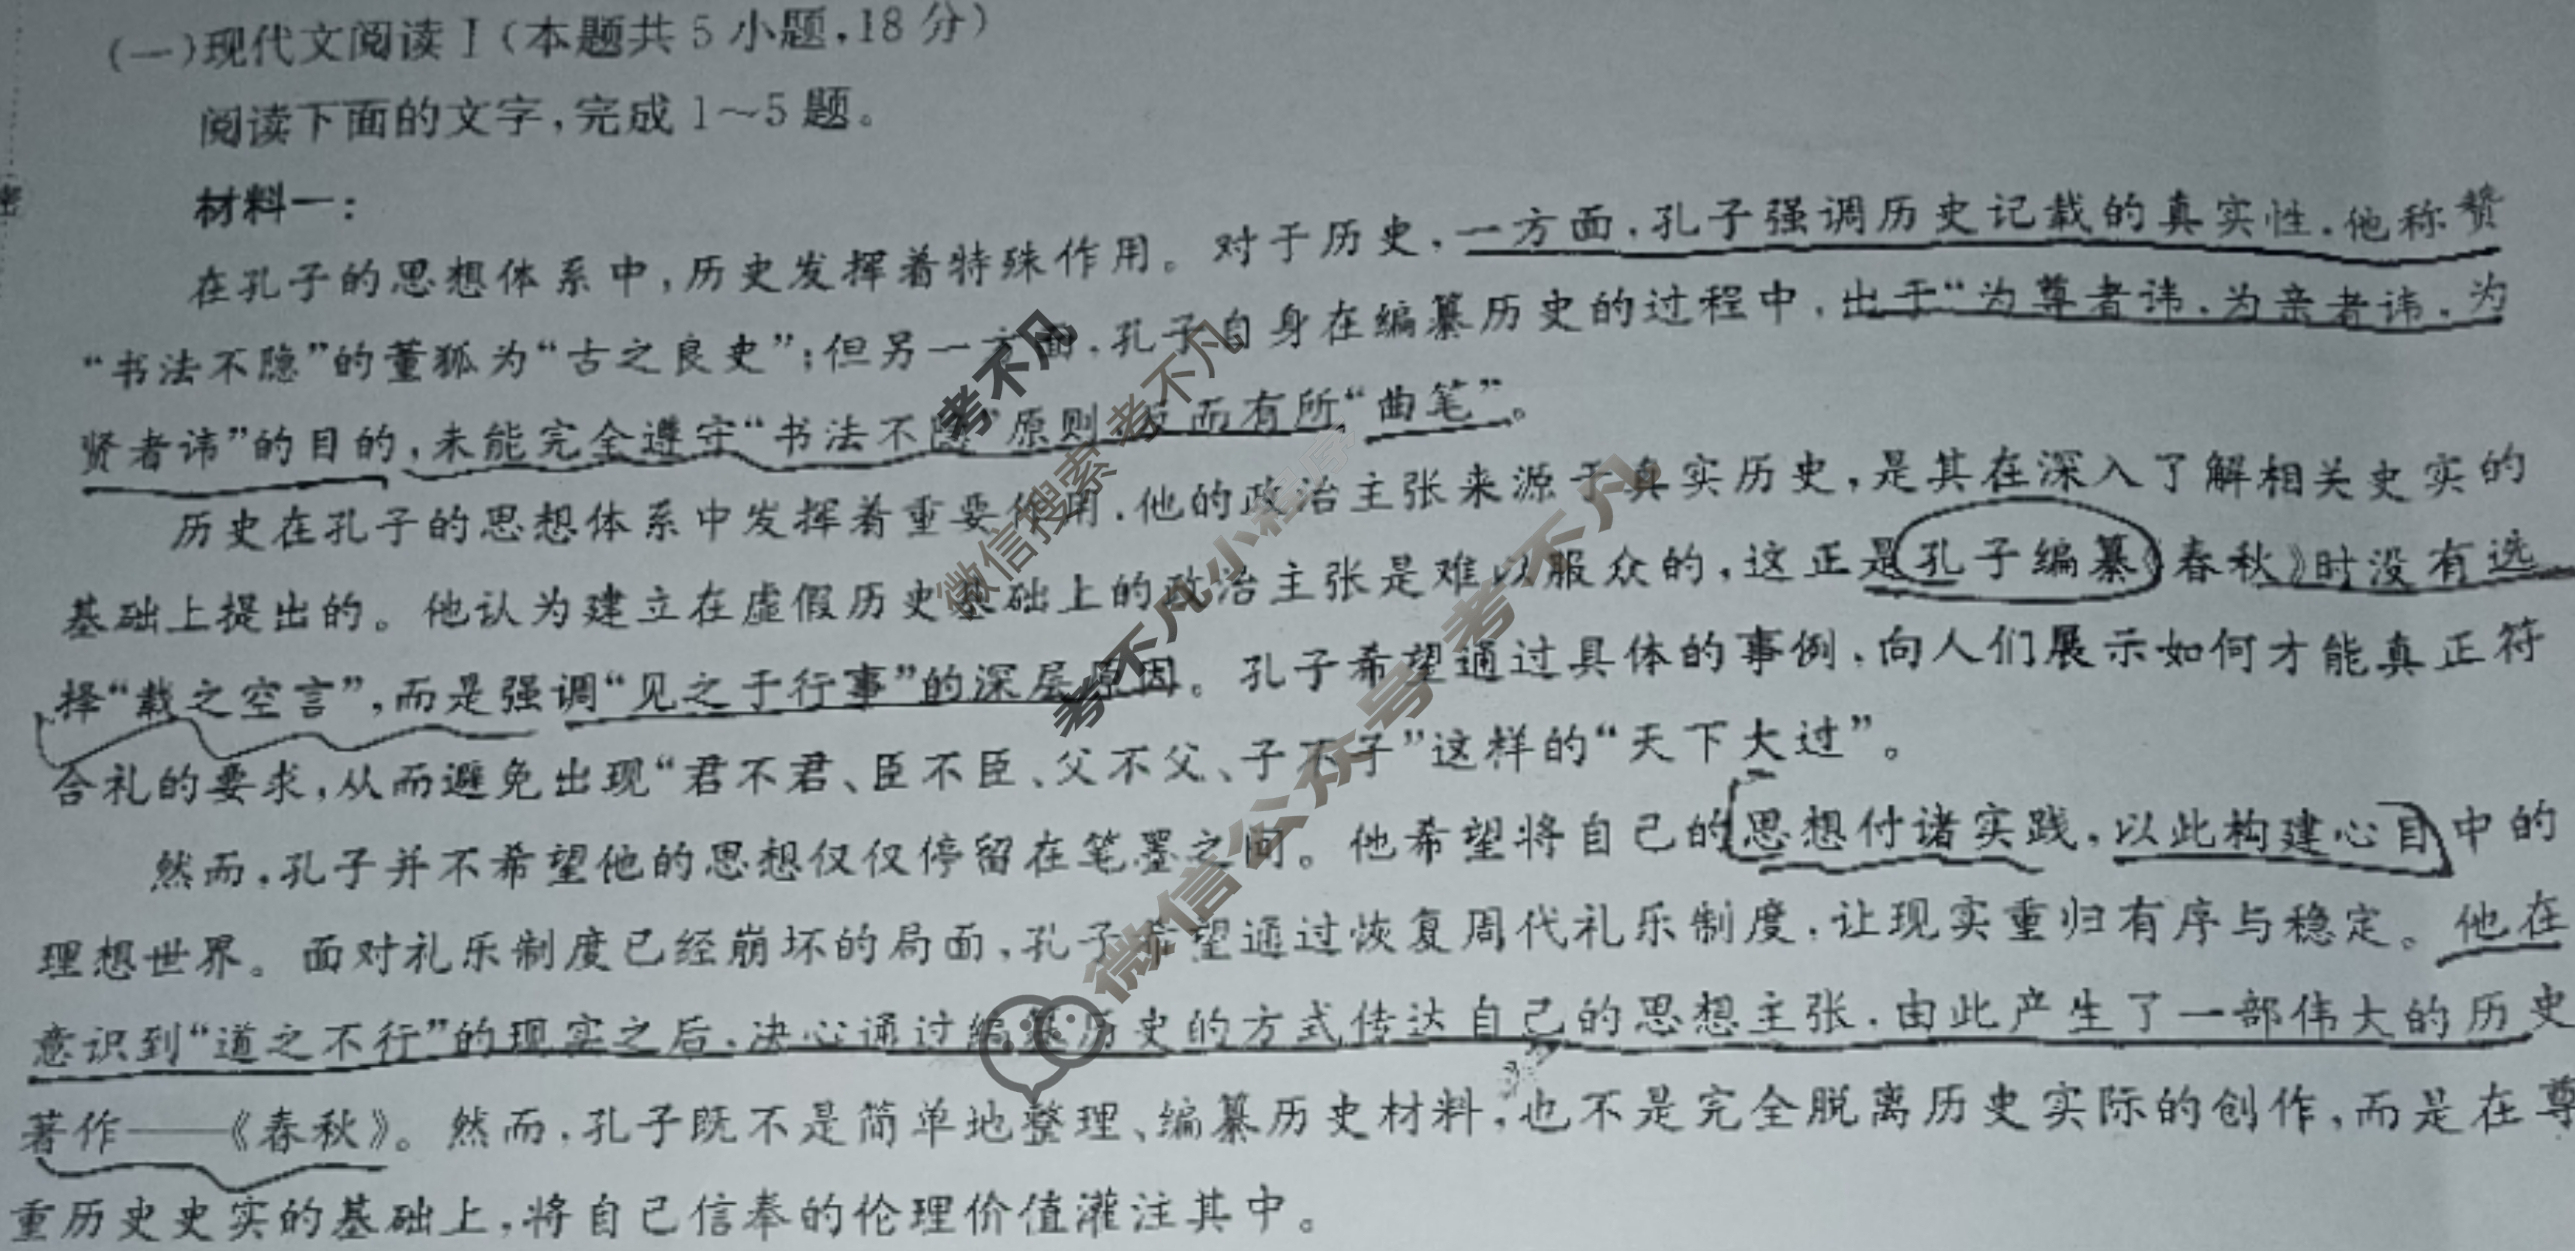 (一)现代文阅读Ⅰ(本题共5小题,18分)
阅读下面的文字,完成1~5题。
材料一:
在孔子的思想体系中,历史发挥着特殊作用。对于历史,一方面,孔子强调历史记载的真实性,他称赞
“书法不隐”的董狐为“古之良史”;但另一方面,孔子自身在编纂历史的过程中,出于“为尊者讳,为亲者讳,为
贤者讳”的目的,未能完全遵守“书法不隐”原则,反而有所“曲笔”。
历史在孔子的思想体系中发挥着重要作用,他的政治主张来源于真实历史,是其在深入了解相关史实的
基础上提出的。他认为建立在虚假历史基础上的政治主张是难以服众的,这正是孔子编纂《春秋》时没有选
择“载之空言”,而是强调“见之于行事”的深层原因。孔子希望通过具体的事例,向人们展示如何才能真正符
合礼的要求,从而避免出现“君不君、臣不臣、父不父、子不子”这样的“天下大过”。
然而,孔子并不希望他的思想仅仅停留在笔墨之间。他希望将自己的思想付诸实践,以此构建心目中的
理想世界。面对礼乐制度已经崩坏的局面,孔子希望通过恢复周代礼乐制度,让现实重归有序与稳定。他在
意识到“道之不行”的现实之后,决心通过编纂历史的方式传达自己的思想主张,由此产生了一部伟大的历史
著作——《春秋》。然而,孔子既不是简单地整理、编纂历史材料,也不是完全脱离历史实际的创作,而是在尊
重历史史实的基础上,将自己信奉的伦理价值灌注其中。
密
考不凡
微信搜索考不凡
考不凡小程序
微信公众号考不凡